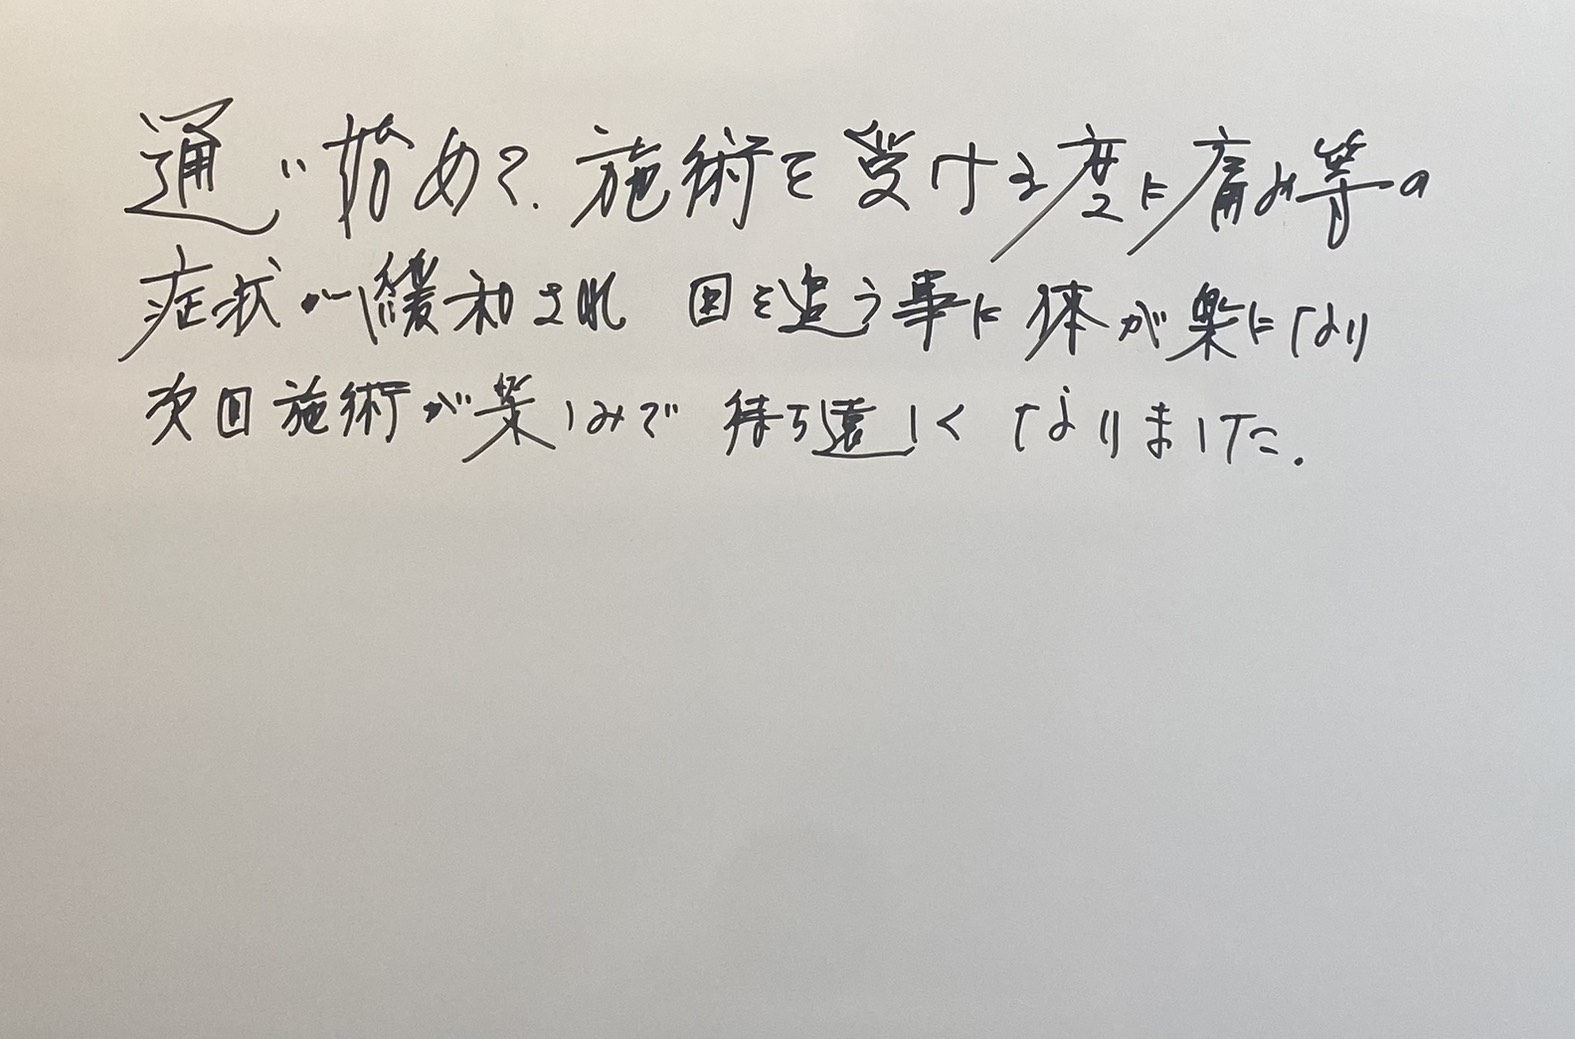 通い始めて、施術を受ける度に痛み等の
症状が緩和され 回を追う事に体が楽になり
次回施術が楽しみで 待ち遠しくなりました.